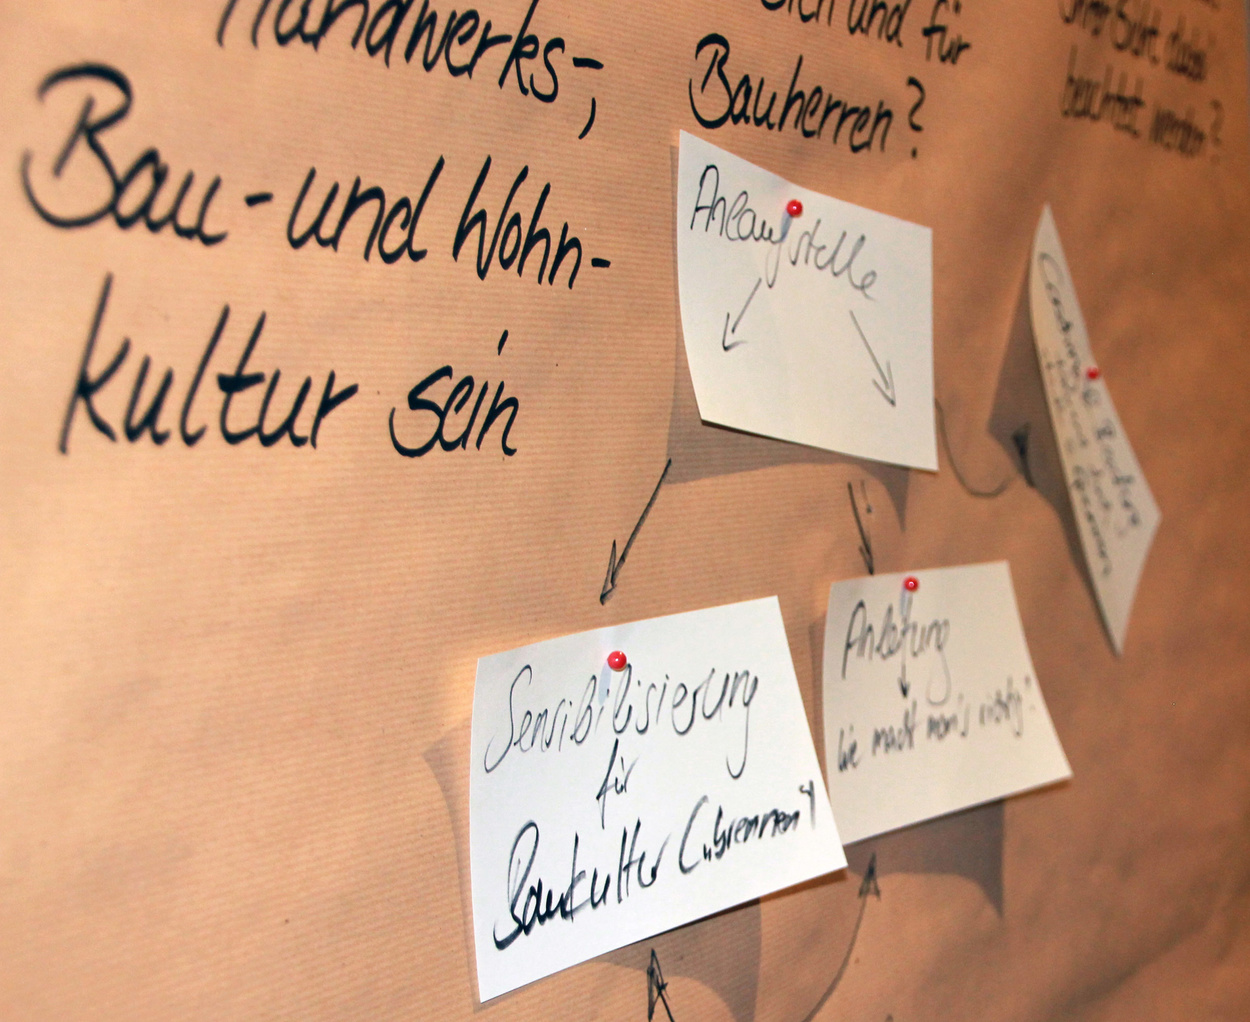 Handwerks-,
Bau- und Wohn-
kultur sein
sich und für
Bauherren?
beachtet werden?
Anlaufstelle
Sensibilisierung
für
Baukultur ("brennen")
Anleitung
Wie macht man's richtig?